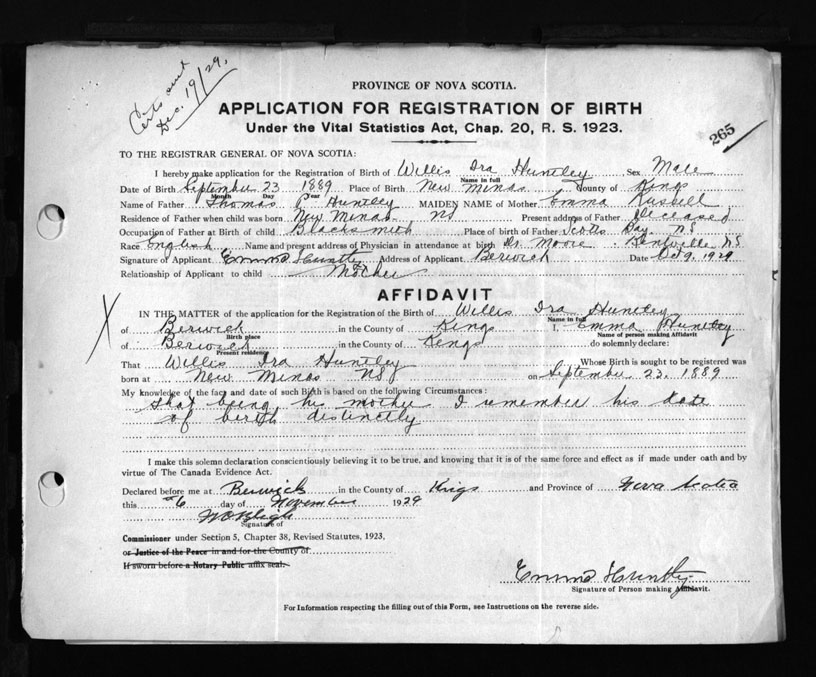 Certs sent
Dec. 19/29.
PROVINCE OF NOVA SCOTIA.
APPLICATION FOR REGISTRATION OF BIRTH
Under the Vital Statistics Act, Chap. 20, R. S. 1923.
265
TO THE REGISTRAR GENERAL OF NOVA SCOTIA:
I hereby make application for the Registration of Birth of Willis Ira Huntley Sex Male
Name in full
Date of Birth September 23 1889 Place of Birth New Minas County of Kings
Month Day Year
Name of Father Thomas Huntley MAIDEN NAME of Mother Emma Russell
Residence of Father when child was born New Minas NS Present address of Father Deceased
Occupation of Father at Birth of child Blacksmith Place of birth of Father Scotts Bay. NS
Race English Name and present address of Physician in attendance at birth Dr. Moore Kentville NS
Signature of Applicant Emma Huntley Address of Applicant Berwick Date 9, 1929
Relationship of Applicant to child Mother
AFFIDAVIT
IN THE MATTER of the application for the Registration of the Birth of Willis Ira Huntley
Name in full
of Berwick in the County of Kings I, Emma Huntley
Birth place Name of person making Affidavit
of Berwick in the County of Kings do solemnly declare:
Present residence
That Willis Ira Huntley Whose Birth is sought to be registered was
born at New Minas NS on September 23. 1889
My knowledge of the fact and date of such Birth is based on the following Circumstances:
That being his mother I remember his date
of birth distinctly
I make this solemn declaration conscientiously believing it to be true, and knowing that it is of the same force and effect as if made under oath and by
virtue of The Canada Evidence Act.
Declared before me at Berwick in the County of Kings and Province of Nova Scotia
this 26 day of November 1929
Signature of
Commissioner under Section 5, Chapter 38, Revised Statutes, 1923,
or Justice of the Peace in and for the County of
If sworn before a Notary Public affix seal.
Emma Huntley
Signature of Person making Affidavit.
For Information respecting the filling out of this Form, see Instructions on the reverse side.